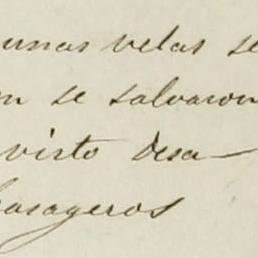 unas velas se
n se salvaron
visto desa-
pasageros